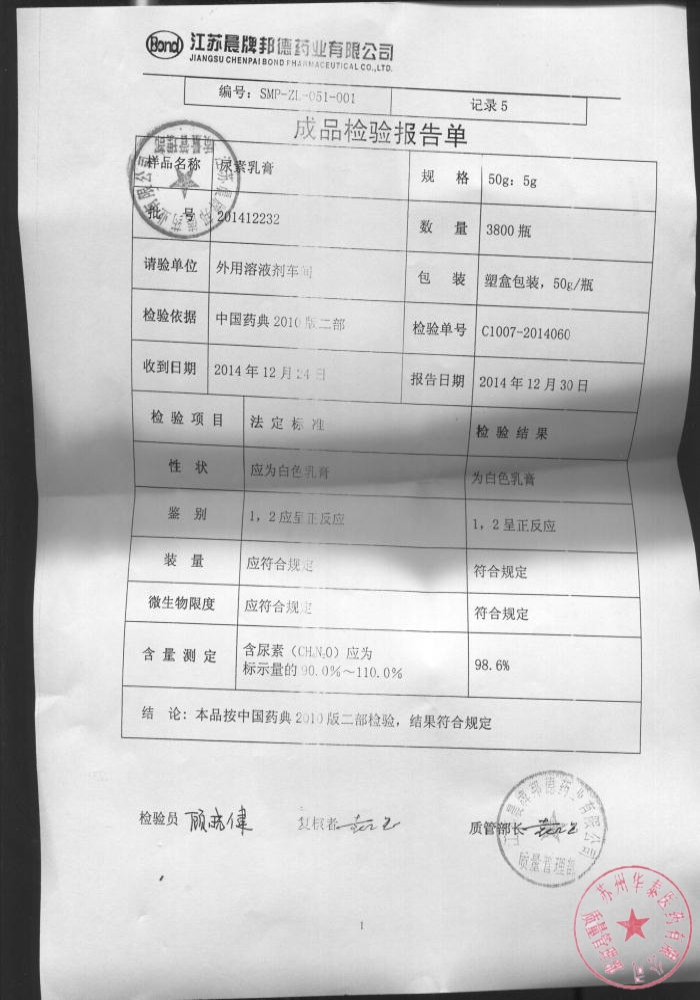 Bond 江苏晨牌邦德药业有限公司
JIANGSU CHENPAI BOND PHARMACEUTICAL CO.,LTD.
编号：SMP-ZL-051-001 记录 5
成品检验报告单
样品名称 尿素乳膏 规 格 50g：5g
批 号 201412232 数 量 3800 瓶
请验单位 外用溶液剂车间 包 装 塑盒包装，50g/瓶
检验依据 中国药典 2010 版二部 检验单号 C1007-2014060
收到日期 2014 年 12 月 24 日 报告日期 2014 年 12 月 30 日
检 验 项 目 法 定 标 准 检 验 结 果
性 状 应为白色乳膏 为白色乳膏
鉴 别 1，2 应呈正反应 1，2 呈正反应
装 量 应符合规定 符合规定
微生物限度 应符合规定 符合规定
含 量 测 定 含尿素（CH₄N₂O）应为
标示量的 90.0%～110.0% 98.6%
结 论：本品按中国药典 2010 版二部检验，结果符合规定
检验员 复核者 质管部长
江苏晨牌邦德药业有限公司
质量管理部
苏州华泰医药有限公司
1